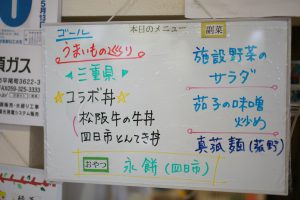 ゴール
本日のメニュー
副菜
うまいもの巡り
三重県
☆コラボ丼☆
松阪牛の牛丼
四日市とんてき丼
おやつ
永餅(四日市)
施設野菜の
サラダ
茄子の味噌
炒め
真菰麺(菰野)
頂ガス
尾平尾町3622-3
059-325-3333